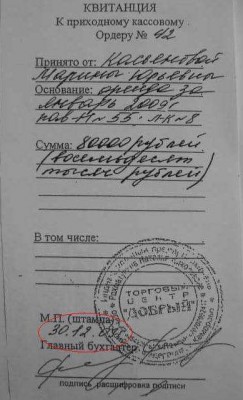 КВИТАНЦИЯ
К приходному кассовому
Ордеру № 42
Принято от: Касьеновой
Марины Юрьевны
Основание: аренда за
январь 2009г
пав Н№55
Сумма: 80000 рублей
(восемьдесят
тысяч рублей)
В том числе:
ТОРГОВЫЙ
ЦЕНТР
"ДОБРЫЙ"
М.П. (штампа)
30.12.
Главный бухгалтер
подпись расшифровка подписи